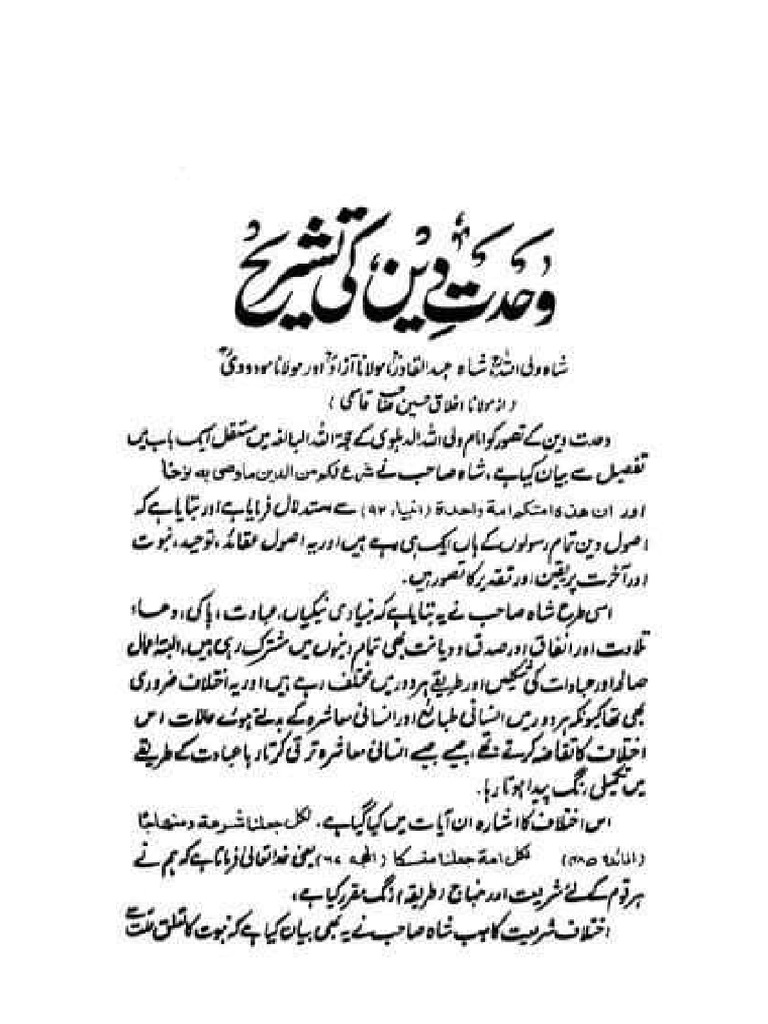 وحدتِ دین کی تشریح
شاہ ولی اللہؒ شاہ عبدالقادرؒ مولانا آزادؒ اور مولانا مودودیؒ
(از مولانا اخلاق حسین صاحب قاسمی)
وحدت دین کے تصور کو امام ولی اللہ الدہلوی کے حجۃ اللہ البالغہ میں مستقل ایک باب میں
تفصیل سے بیان کیا ہے، شاہ صاحب نے شرع لکم من الدین ما وصی بہ نوحا
اور ان ھذہ امتکم امۃ واحدۃ (انبیاء ۹۲) سے استدلال فرمایا ہے اور بتایا ہے کہ
اصول دین تمام رسولوں کے ہاں ایک ہی رہے ہیں اور یہ اصول عقائد، توحید، نبوت
اور آخرت پر یقین اور تقدیر کا تصور ہیں.
اسی طرح شاہ صاحب نے یہ بتایا ہے کہ بنیادی نیکیاں، عبادت، پاکی، دعاء
تلاوت اور انفاق اور صدق و دیانت بھی تمام دینوں میں مشترک رہی ہیں، البتہ اعمال
صالحہ اور عبادات کی شکلیں اور طریقے ہر دور میں مختلف رہے ہیں اور یہ اختلاف ضروری
بھی تھا کیونکہ ہر دور میں انسانی طبائع اور انسانی معاشرہ کے بدلتے ہوئے حالات اس
اختلاف کا تقاضہ کرتے تھے، جیسے جیسے انسانی معاشرہ ترقی کرتا رہا عبادت کے طریقے
میں تکمیلی رنگ پیدا ہوتا رہا.
اس اختلاف کا اشارہ ان آیات میں کیا گیا ہے. لکل جعلنا شرعۃ و منھاجا
(المائدۃ ۴۸،۵) لکل امۃ جعلنا منسکا (الحج ۶۷) یعنی خدا تعالیٰ فرماتا ہے کہ ہم نے
ہر قوم کے لئے شریعت اور منہاج (طریقہ) الگ مقرر کیا ہے،
اختلاف شریعت کا سبب شاہ صاحب نے یہ بھی بیان کیا ہے کہ نبوت کا تعلق ملت سے